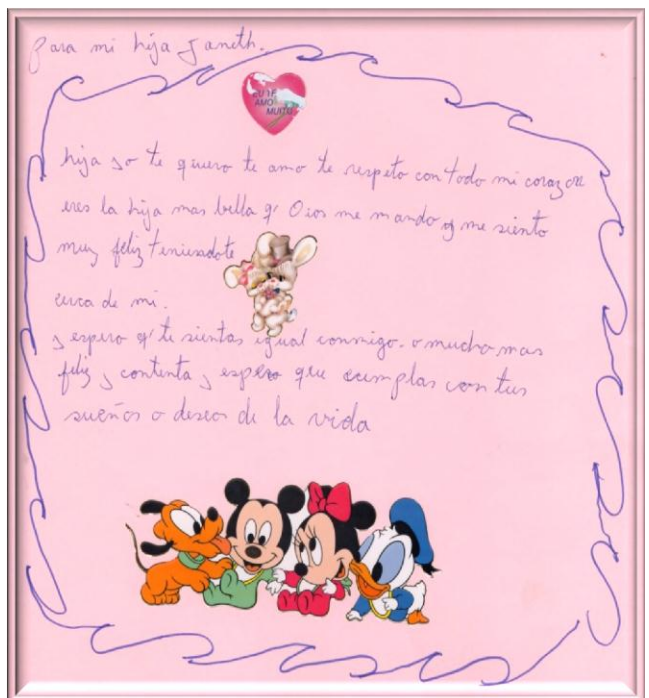 para mi hija Janeth.
EU TE
AMO
MUITO
hija yo te quiero te amo te respeto con todo mi corazon
eres la hija mas bella q' Dios me mando y me siento
muy feliz teniendote
cerca de mi.
y espero q' te sientas igual conmigo. o mucho mas
feliz y contenta y espero que cumplas con tus
sueños o deseos de la vida